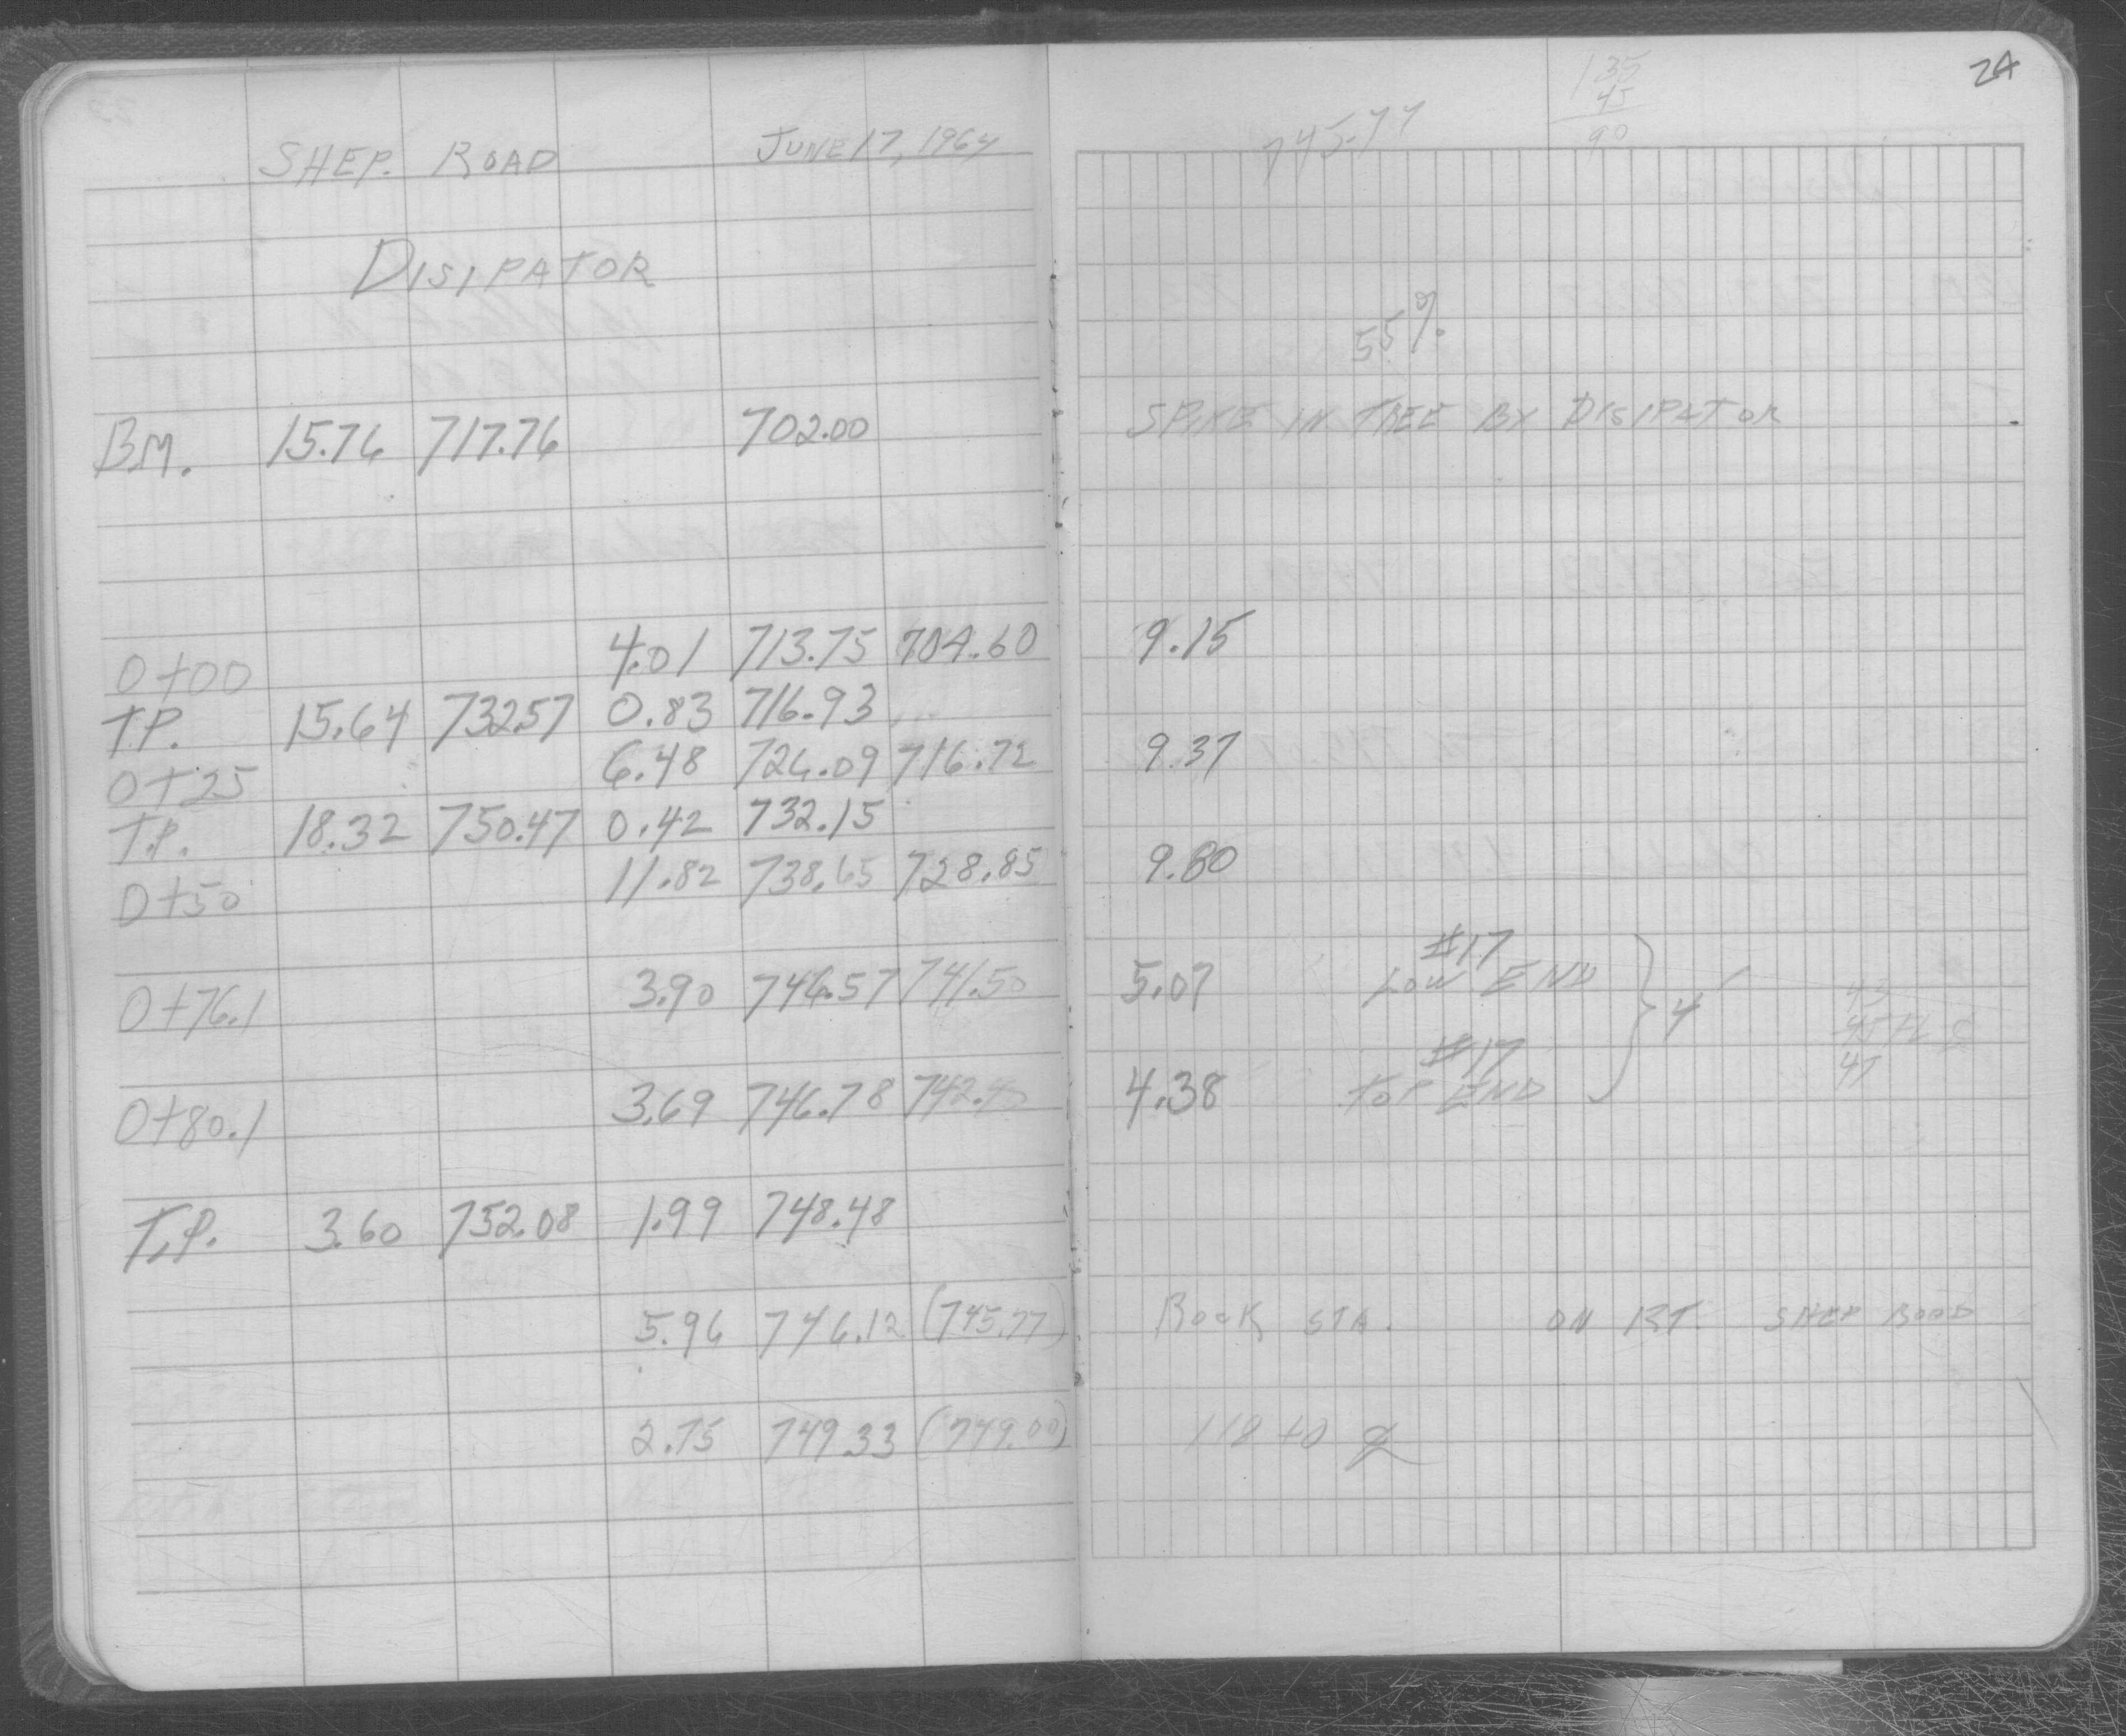 SHEP. ROAD JUNE 17, 1964
DISIPATOR
BM. 15.76 717.76 702.00
0+00 4.01 713.75 704.60
T.P. 15.64 732.57 0.83 716.93
0+25 6.48 726.09 716.72
T.P. 18.32 750.47 0.42 732.15
0+50 11.82 738.65 728.85
0+76.1 3.90 746.57 741.50
0+80.1 3.69 746.78 742.40
T.P. 3.60 752.08 1.99 748.48
5.96 746.12 (745.77)
2.75 749.33 (749.00)
24
135
45
90
745.77
55%
SPIKE IN TREE BY DISIPATOR
9.15
9.37
9.80
#17
5.07 LOW END
4'
#17
4.38 TOP END
43
45
47
ROCK STA. ON RT. SHEP ROAD